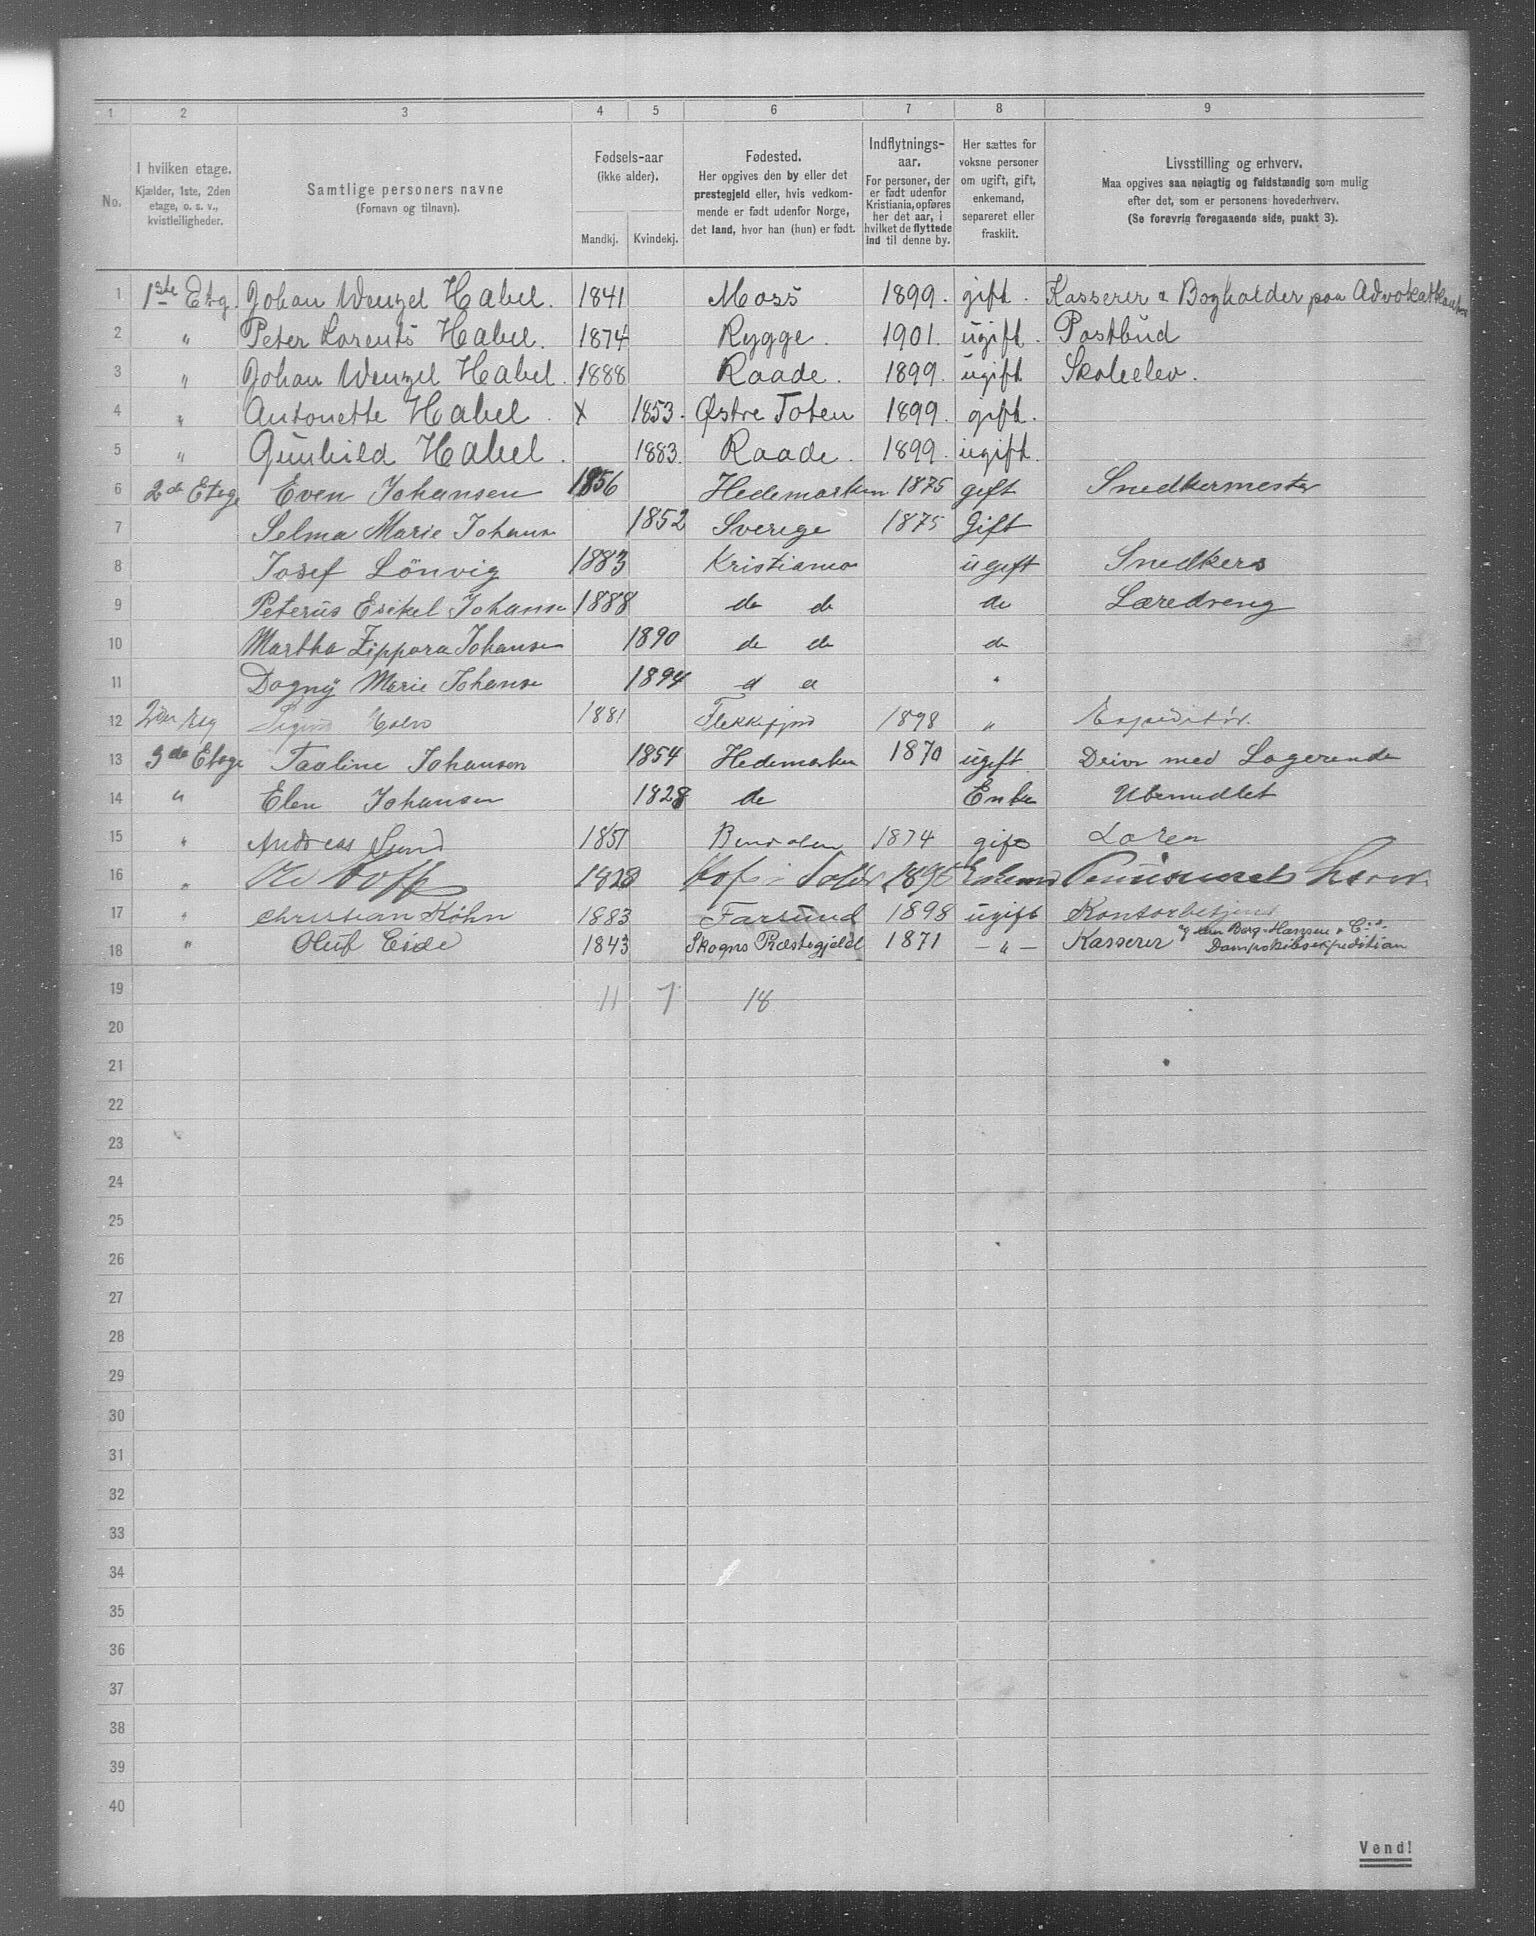 1 2 3 4 5 6 7 8 9
No.
I hvilken etage.
Kjælder, 1ste, 2den
etage, o. s. v.,
kvistleiligheder.
Samtlige personers navne
(Fornavn og tilnavn).
Fødsels-aar
(ikke alder).
Mandkj. Kvindekj.
Fødested.
Her opgives den by eller det
prestegjeld eller, hvis vedkom-
mende er født udenfor Norge,
det land, hvor han (hun) er født.
Indflytnings-
aar.
For personer, der
er født udenfor
Kristiania, opføres
her det aar, i
hvilket de flyttede
ind til denne by.
Her sættes for
voksne personer
om ugift, gift,
enkemand,
separeret eller
fraskilt.
Livsstilling og erhverv.
Maa opgives saa nøiagtig og fuldstændig som mulig
efter det, som er personens hovederhverv.
(Se forøvrig foregaaende side, punkt 3).
1 1ste Etg. Johan Wenzel Habel. 1841 Moss 1899. gift. Kasserer & Bogholder paa Advokatkontor
2 " Peter Lorents Habel. 1874 Rygge. 1901. ugift. Postbud
3 " Johan Wenzel Habel. 1888 Raade. 1899. ugift Skoleelev.
4 " Antonette Habel. X 1853. Østre Toten 1899. gift.
5 " Gunhild Habel. 1883. Raade. 1899. ugift.
6 2de Etage Even Johansen 1856 Hedemarken 1875 gift Snedkermester
7 Selma Marie Johans 1852 Sverige 1875 Gift
8 Josef Lönvig 1883 Kristiania ugift Snedkers
9 Peterus Esikel Johanse 1888 do do do Læredreng
10 Martha Zippora Johansen 1890 do do do
11 Dagny Marie Johanse 1894 d d "
12 2den Etg 1881 Flekkefjord 1898 " Expeditør.
13 3de Etage Pauline Johansen 1854 Hedemarken 1870 ugift Driver med Logerende
14 " Elen Johansen 1828 do Enke Ubemidlet
15 " Andreas Lund 1851 1874 gift
16 " 1828 Hof i Solør
17 " Christian Köhn 1883 Farsund 1898 ugift Kontorbetjent
18 " Oluf Eide 1843 Skogns Præstegjeld 1871 — " — Kasserer Berg-Hansen & Cos. Dampskibsexpedition
19 11 7 18
20
21
22
23
24
25
26
27
28
29
30
31
32
33
34
35
36
37
38
39
40
Vend!